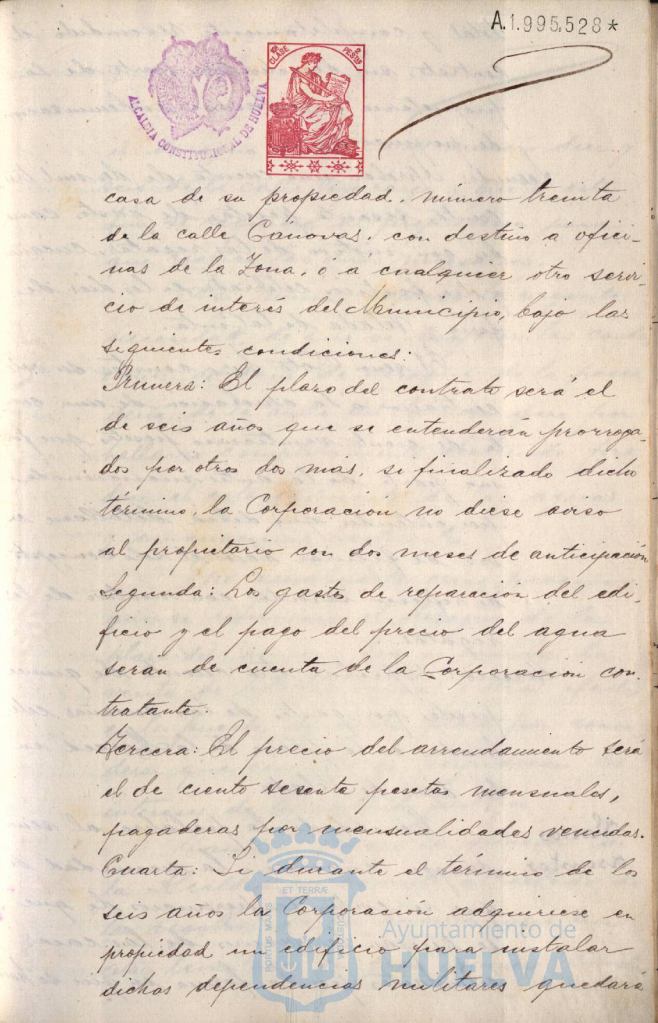 A.1.995,528*
10ª CLASE 2 PESTAS
ALCALDIA CONSTITUCIONAL DE HUELVA
casa de su propiedad, número treinta
de la calle Cánovas, con destino á ofici-
nas de la Zona, ó á cualquier otro servi-
cio de interés del Municipio, bajo las
siguientes condiciones:
Primera: El plazo del contrato será el
de seis años que se entenderán prorroga-
dos por otros dos más, si finalizado dicho
término, la Corporación no diese aviso
al propietario con dos meses de anticipación
Segunda: Los gastos de reparación del edi-
ficio y el pago del precio del agua
serán de cuenta de la Corporación con-
tratante.
Tercera: El precio del arrendamiento será
el de ciento sesenta pesetas mensuales,
pagaderas por mensualidades vencidas.
Cuarta: Si durante el término de los
seis años la Corporación adquiriese en
propiedad un edificio para instalar
dichas dependencias militares quedará
PORTUS MARIS ET TERRÆ CUSTODIA
Ayuntamiento de
HUELVA